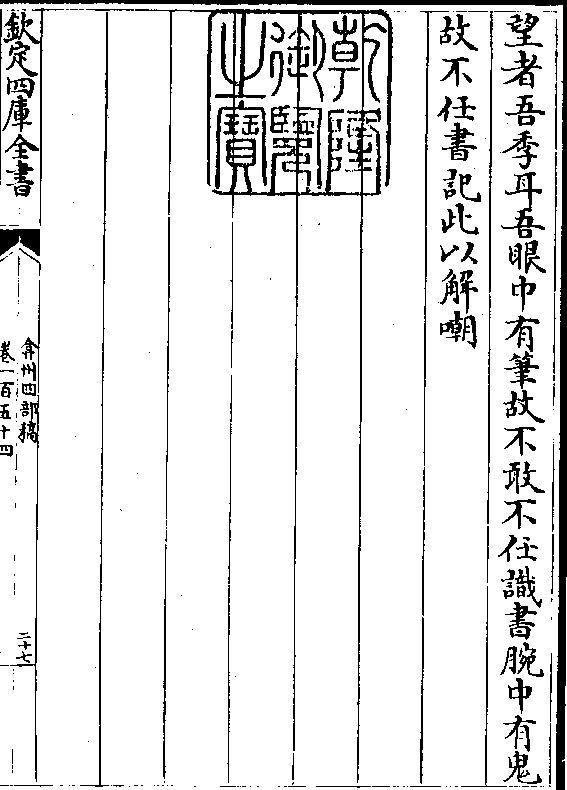 望者吾季耳吾眼中有筆故不敢不任識書腕中有鬼
故不任書記此以解嘲
乾隆御覽之寶
欽定四庫全書
弇州四部稿
卷一百五十四
二十七